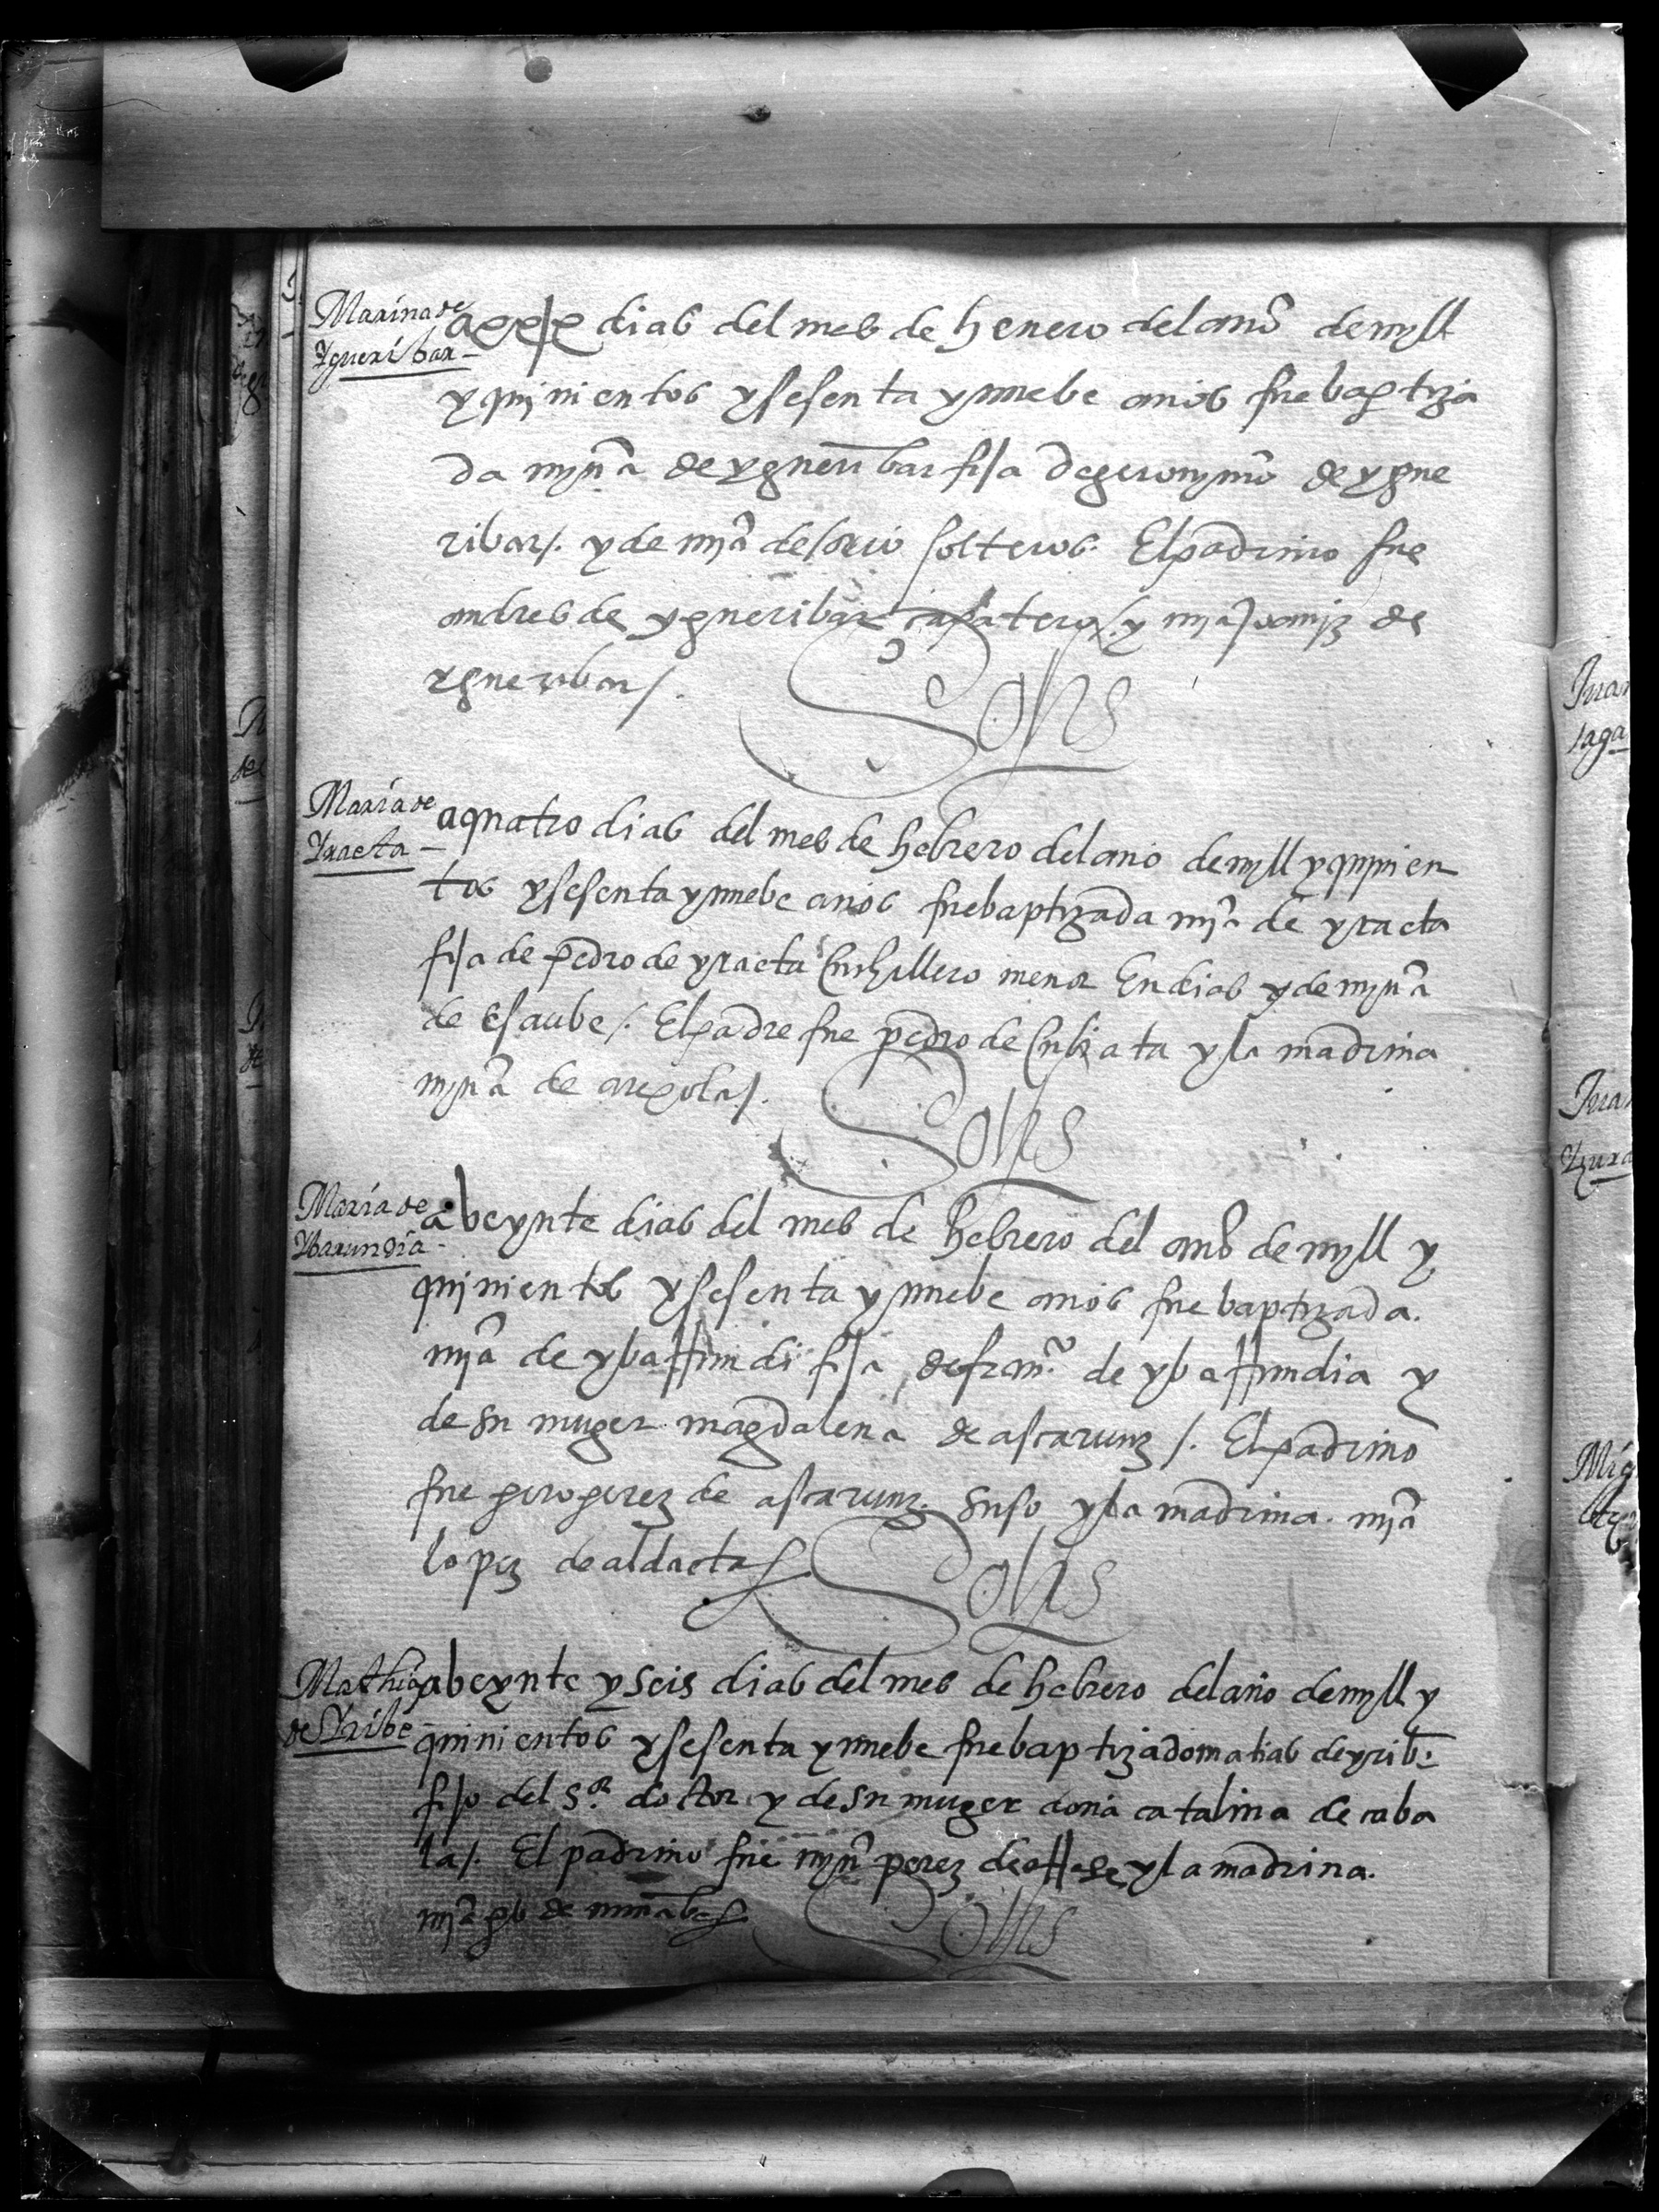 Marina de
Ygueribar
a xxx dias del mes de henero del anõ de myll
y quinientos y sesenta y nuebe anõs fue baptiza
da myña de ygueribar fija de geronymõ de ygue
ribar/. y de mjã de solteros. El padrino fue
andres de ygueribar capatero/. y mja joanjz de
ygueribar/.
Solis
Maria de
Yraeta
a quatro dias del mes de hebrero del anõ de myll y quinien
tos y sesenta y nuebe anõs fue baptizada mjã de yraeta
fija de pedro de yraeta cuchillero menor en dias y de myña
de elsaube/. El padre fue pedro de y la madrina
myña de arexola/.
Solis
Maria de
Ybarundia
a beynte dias del mes de hebrero del anõ de myll y
quinientos y sesenta y nuebe anõs fue baptizada.
mjã de ybarrundi fija de franco. de ybarrundia y
de su muger magdalena de ascarunz/. El padrino
fue pero perez de ascarunz. suso y la madrina. mjã
lopez de aldaeta/.
Solis
Mathias
de Yribe
a beynte y seis dias del mes de hebrero del año de myll y
quinientos y sesenta y nuebe fue baptizado matias de yribe
fijo del sor. doctor y de su muger doña catalina de caba
la/. El padrino fue myñ perez de y la madrina.
mjã de
Solis
Juan
Mig